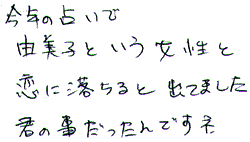 今年の占いで
由美子という女性と
恋に落ちると出てました
君の事だったんですネ